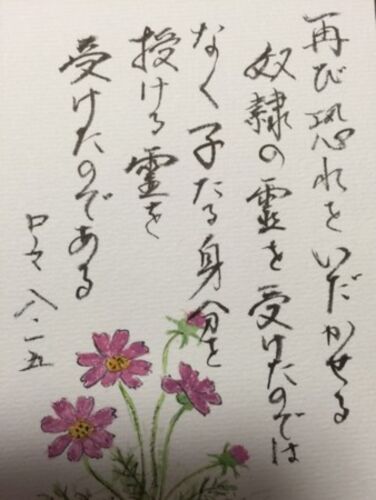 再び恐れをいだかせる
奴隷の霊を受けたのでは
なく子たる身分を
授ける霊を
受けたのである
ロマ 八・一五